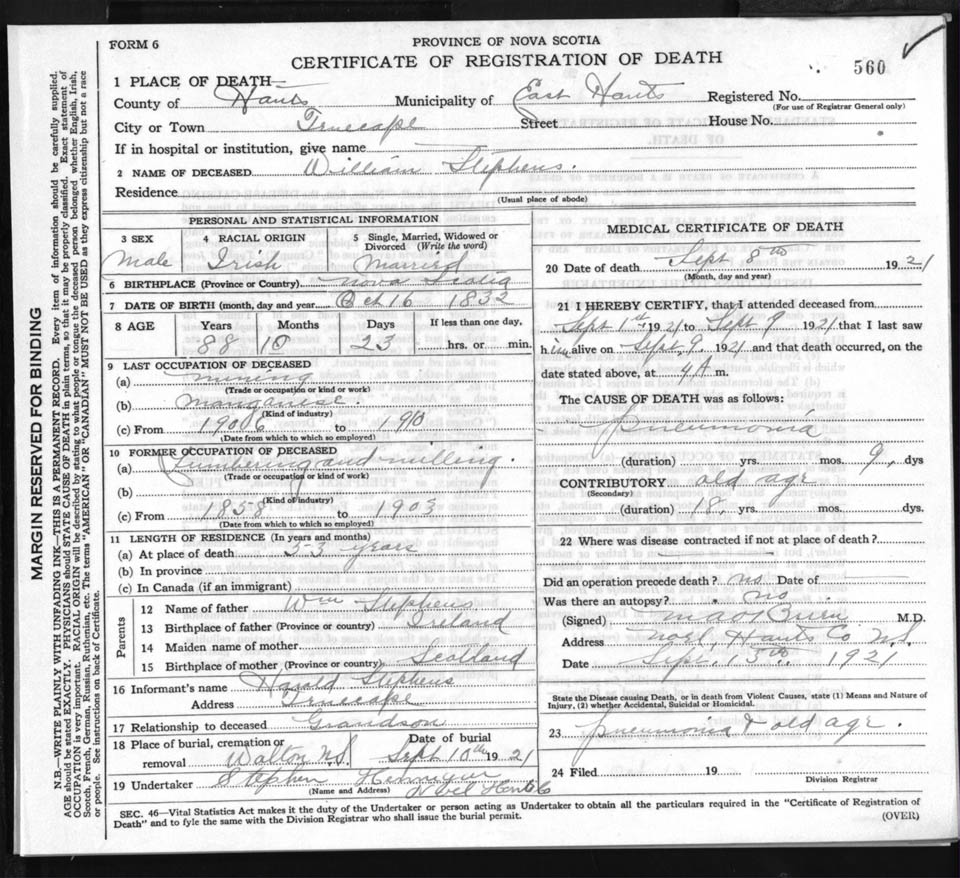 FORM 6
PROVINCE OF NOVA SCOTIA
CERTIFICATE OF REGISTRATION OF DEATH
560
1 PLACE OF DEATH—
County of Hants Municipality of East Hants Registered No.
(For use of Registrar General only)
City or Town Tenecape Street House No.
If in hospital or institution, give name
2 NAME OF DECEASED William Stephens.
Residence
(Usual place of abode)
PERSONAL AND STATISTICAL INFORMATION
3 SEX Male
4 RACIAL ORIGIN Irish
5 Single, Married, Widowed or Divorced (Write the word) Married
6 BIRTHPLACE (Province or Country) Nova Scotia
7 DATE OF BIRTH (month, day and year) Oct 16 1832
8 AGE Years Months Days If less than one day,
88 10 23 hrs. or min.
9 LAST OCCUPATION OF DECEASED
(a) mining
(Trade or occupation or kind or work)
(b) manganese.
(Kind of industry)
(c) From 1906 to 1910
(Date from which to which so employed)
10 FORMER OCCUPATION OF DECEASED
(a) Lumbering and milling.
(Trade or occupation or kind of work)
(b)
(Kind of industry)
(c) From 1858 to 1903
(Date from which to which so employed)
11 LENGTH OF RESIDENCE (In years and months)
(a) At place of death 53 years
(b) In province
(c) In Canada (if an immigrant)
Parents
12 Name of father Wm Stephens
13 Birthplace of father (Province or country) Ireland
14 Maiden name of mother
15 Birthplace of mother (Province or country) Scotland
16 Informant's name Harold Stephens
Address Tenecape
17 Relationship to deceased Grandson
18 Place of burial, cremation or removal Walton N.S. Date of burial Sept 10th 1921
19 Undertaker Stephen
(Name and Address) Noel Hants Co
MEDICAL CERTIFICATE OF DEATH
20 Date of death Sept 8th 1921
(Month, day and year)
21 I HEREBY CERTIFY, that I attended deceased from
Sept 1st 1921 to Sept 9 1921 that I last saw
him alive on Sept, 9. 1921 and that death occurred, on the
date stated above, at 4 A m.
The CAUSE OF DEATH was as follows:
Pneumonia
(duration) yrs. mos. 9, dys
CONTRIBUTORY old age
(Secondary)
(duration) 18, yrs. mos. dys.
22 Where was disease contracted if not at place of death?
Did an operation precede death? no Date of
Was there an autopsy? no
(Signed) M.D.
Address Noel, Hants Co N.S.
Date Sept. 15th 1921
State the Disease causing Death, or in death from Violent Causes, state (1) Means and Nature of
Injury, (2) whether Accidental, Suicidal or Homicidal.
23 Pneumonia & old age.
24 Filed 19
Division Registrar
SEC. 46—Vital Statistics Act makes it the duty of the Undertaker or person acting as Undertaker to obtain all the particulars required in the "Certificate of Registration of
Death" and to fyle the same with the Division Registrar who shall issue the burial permit.
(OVER)
MARGIN RESERVED FOR BINDING
N.B.—WRITE PLAINLY WITH UNFADING INK—THIS IS A PERMANENT RECORD. Every item of information should be carefully supplied.
AGE should be stated EXACTLY. PHYSICIANS should STATE CAUSE OF DEATH in plain terms, so that it may be properly classified. Exact statement of
OCCUPATION is very important. RACIAL ORIGIN will be described by stating to what people or tongue the deceased person belonged whether English, Irish,
Scotch, French, German, Russian, Ruthenian, etc. The terms "AMERICAN" OR "CANADIAN" MUST NOT BE USED as they express citizenship but not a race
or people. See instructions on back of Certificate.